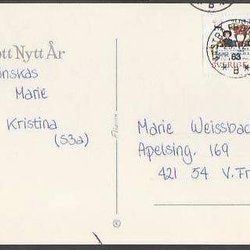 ott Nytt År
önskas
Marie
Kristina
(S3a)
Marie Weissbac
Apelsing. 169
421 54 V.Fr
83
SVERIGE